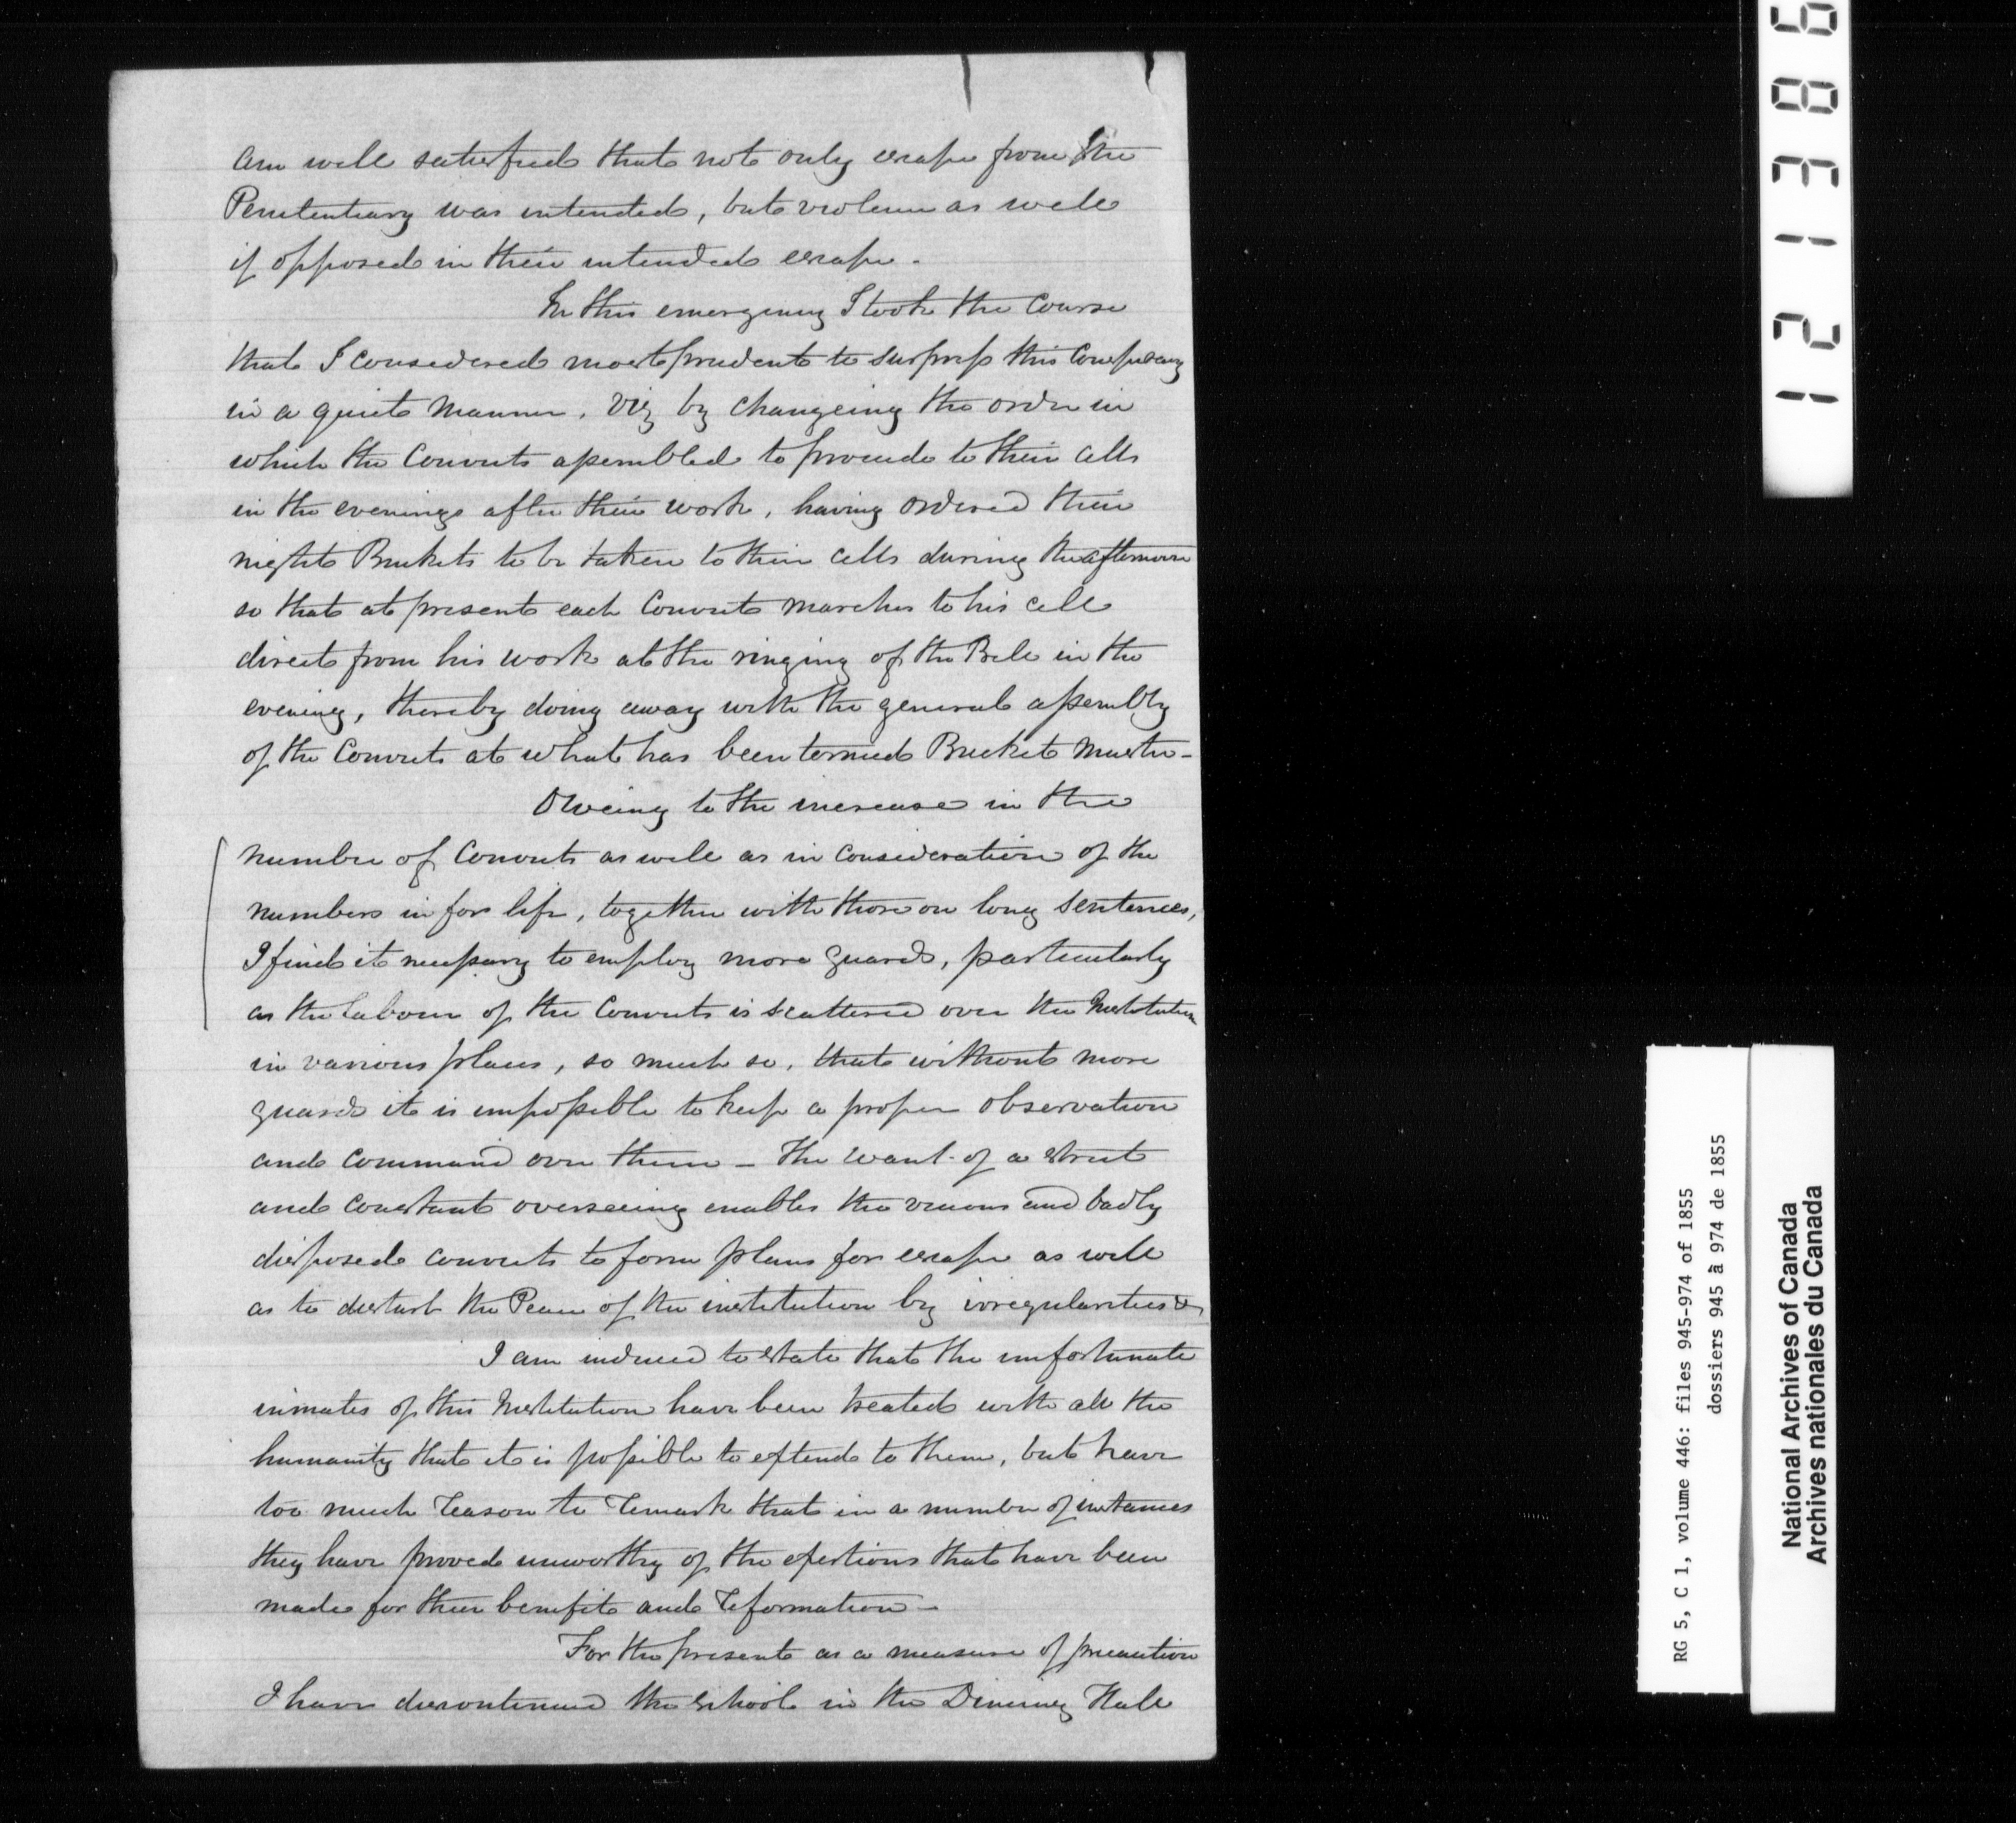 am well satisfied that not only escape from the
Penitentiary was intended, but violence as well
if opposed in their intended escape.
In this emergency I took the Course
that I considered most prudent to surpress this Conspiracy
in a quiet manner. Viz by changeing the order in
which the Convicts assembled to proceede to their cells
in the evenings after their work, having ordered their
night Buckets to be taken to their cells during the afternoon
so that at present each Convict marches to his cell
direct from his work at the ringing of the Bell in the
evening, thereby doing away with the general assembly
of the Convicts at what has been termed Bucket Muster -
Oweing to the increase in the
number of Convicts as well as in consideration of the
numbers in for life, together with those on long sentences,
I find it necessary to employ more guards, particularly
as the labour of the Convicts is scattered over the Institution
in various places, so much so, that without more
guards it is impossible to keep a proper observation
and command over them - The want of a strict
and constant overseeing enables the vicious and badly
disposed convicts to form plans for escape as well
as to disturb the Peace of the institution by irregularities &c
I am induced to state that the unfortunate
inmates of this Institution have been treated with all the
humanity that it is possible to extend to them, but have
too much reason to remark that in a number of instances
they have proved unworthy of the exertions that have been
made for their benefit and reformation -
For the present as a measure of precaution
I have discontinued the School in the Dineing Hall
121386
RG 5, C 1, volume 446: files 945-974 of 1855
dossiers 945 à 974 de 1855
National Archives of Canada
Archives nationales du Canada